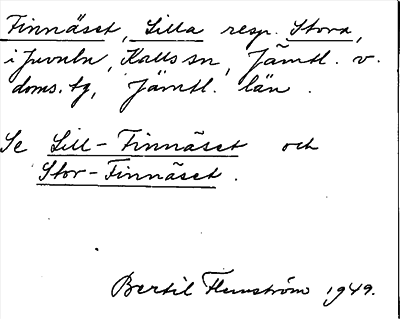 Finnäset, Lilla resp. Stora,
i Juvuln, Kalls sn, Jämtl. v.
doms. tg, Jämtl. län.
Se Lill-Finnäset och
Stor-Finnäset.
Bertil Flemström 1949.